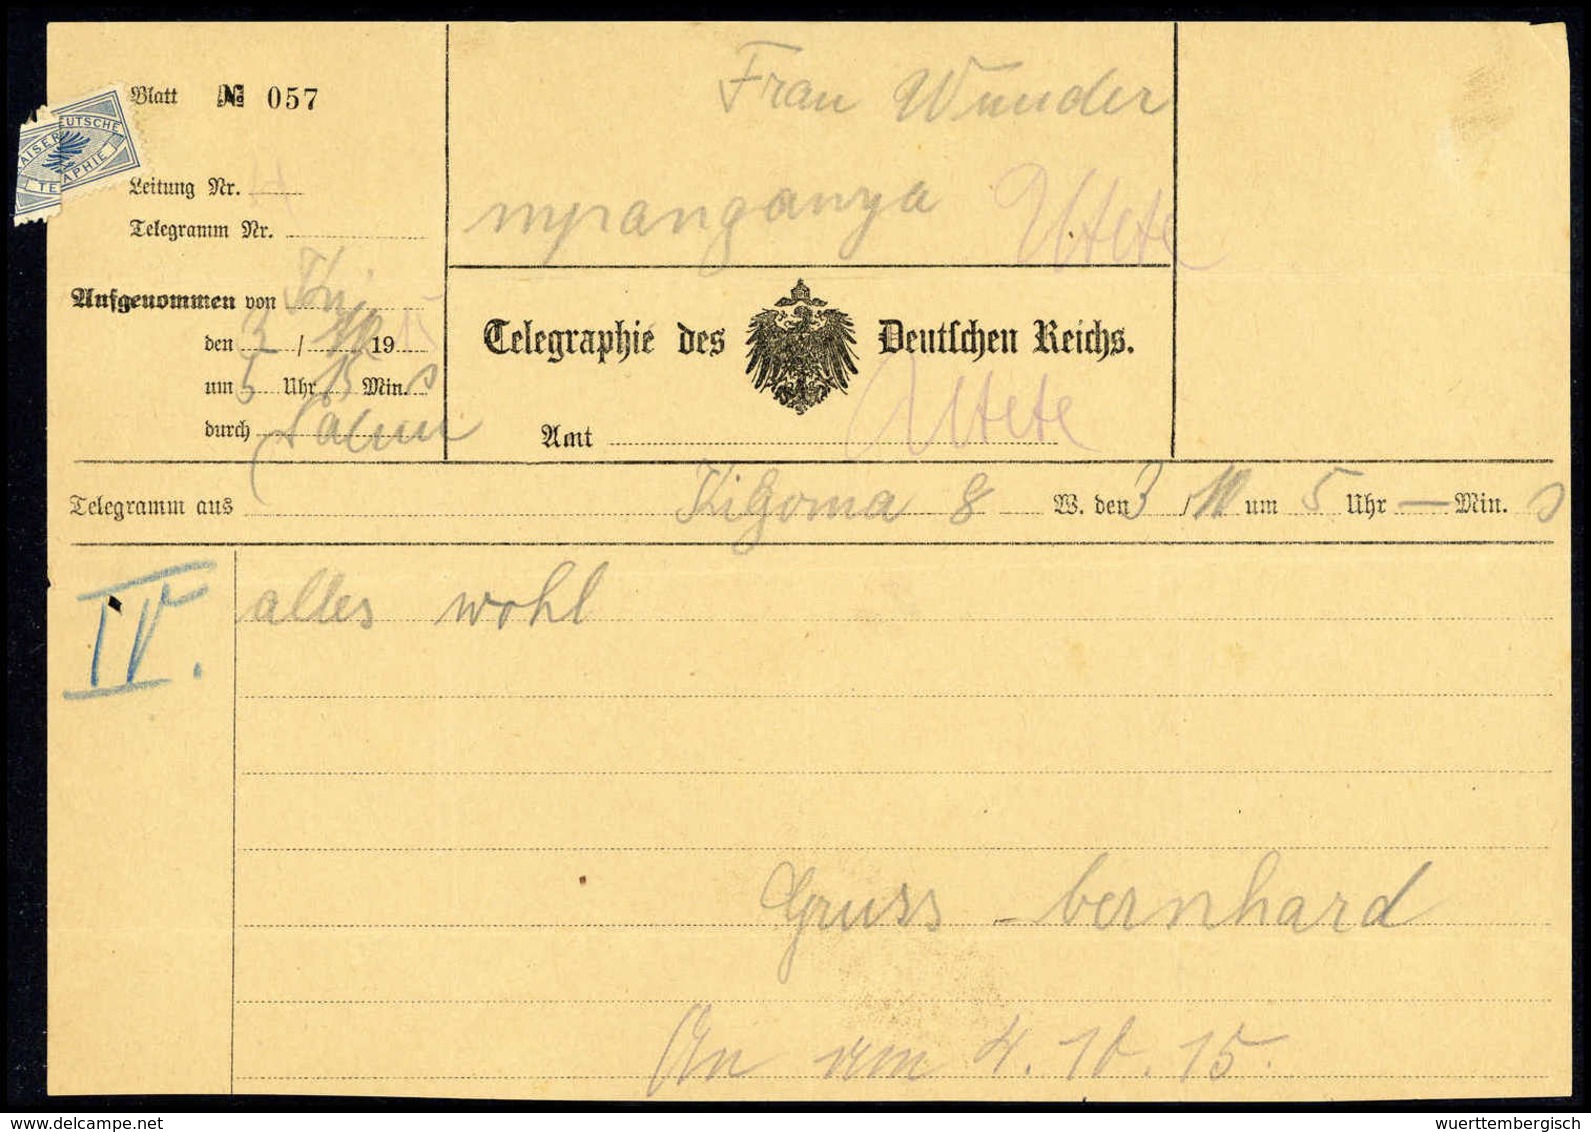 Blatt № 057
DEUTSCHE
KAISER
TE
APHIE
Frau Wunder
Leitung Nr.
mpanganya Utete
Telegramm Nr.
Aufgenommen von
den 3 / 10 1915
um 5 Uhr 15 Min. s
durch
Telegraphie des Deutschen Reichs.
Amt Utete
Telegramm aus Kigoma 8 W. den 3 /10 um 5 Uhr — Min. s
IV.
alles wohl
Gruss - bernhard
An 4.10.15.
delcampe.net
wuerttembergisch